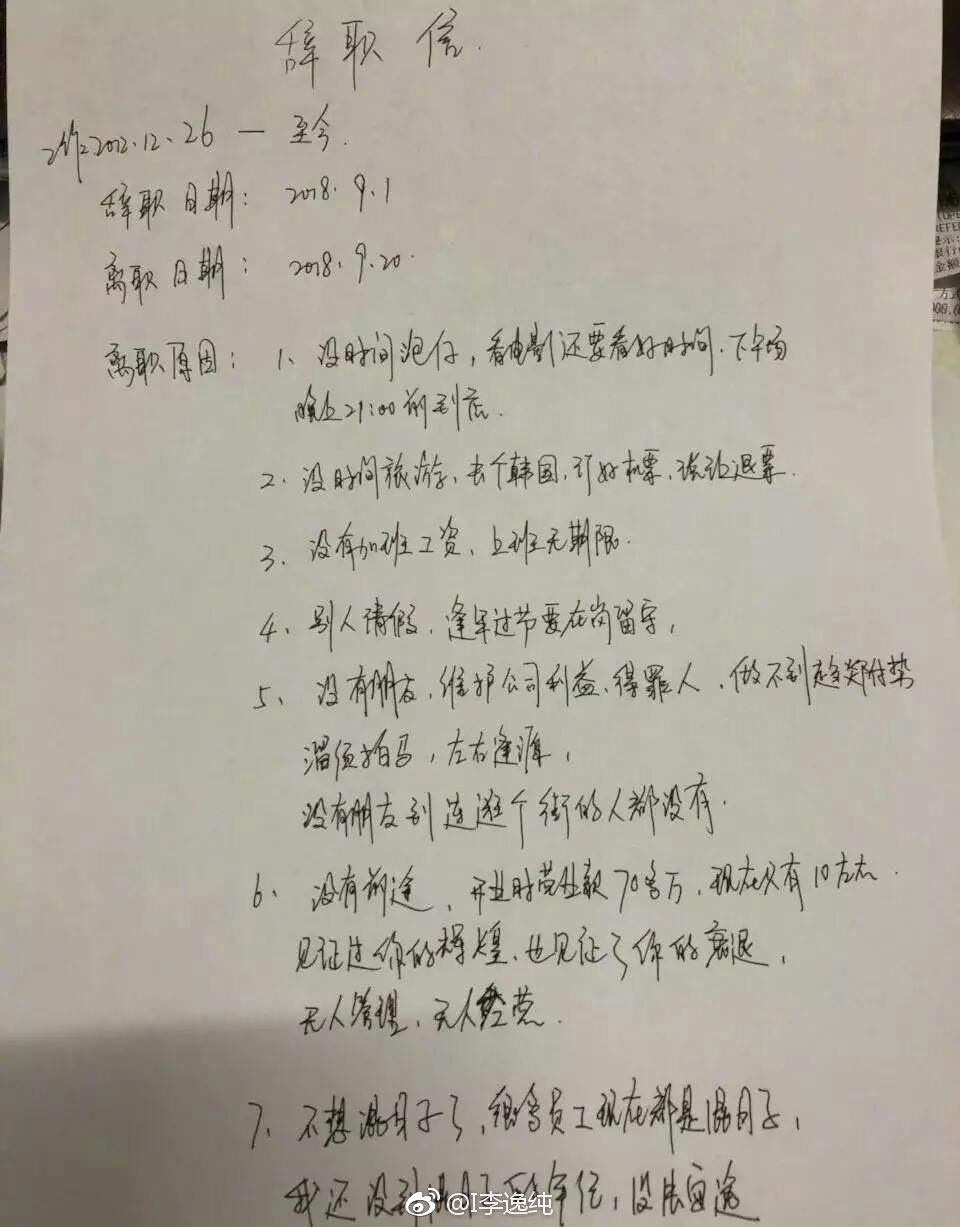 辞职信.
工作2012.12.26 — 至今.
辞职日期: 2018.9.1
离职日期: 2018.9.20.
离职原因: 1、没时间泡仔,看电影还要看好时间.下午场
晚上21:00前到店.
2、没时间旅游、去个韩国,订好机票,说让退票.
3、没有加班工资、上班无期限.
4、别人请假、逢年过节要在岗留守,
5、没有朋友、维护公司利益、得罪人、做不到趋炎附势
溜须拍马,左右逢源,
没有朋友到连逛个街的人都没有.
6、没有前途、开业时营业款70多万,现在只有10左右.
见证过你的辉煌、也见证了你的衰退,
无人管理、无人经营.
7、不想混日子了,很多员工现在都是混日子,
我还没到混日子的年纪,没法
@I李逸纯
OPE
REFER
提示:
银行
金额
方式
000.0